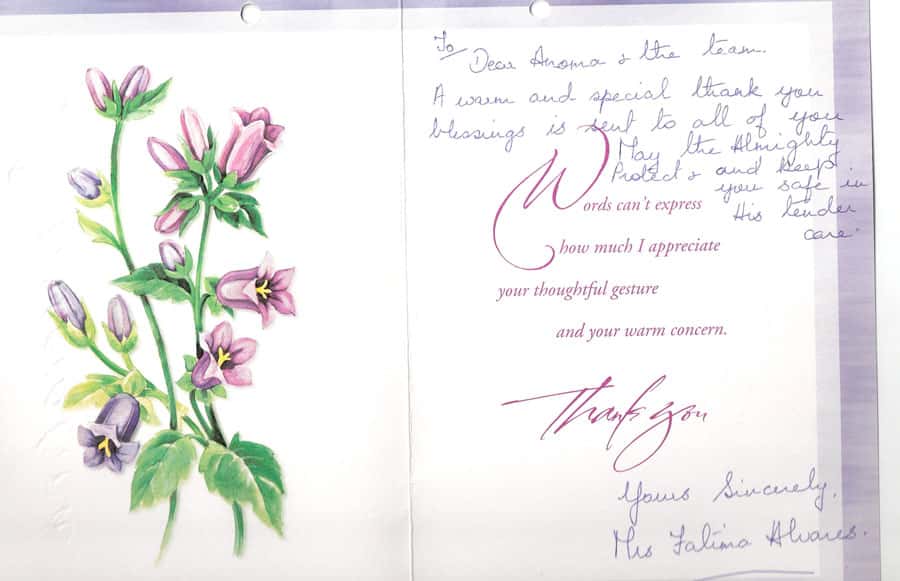 To
Dear Anoma & the team.
A warm and special thank you
blessings is sent to all of you
May the Almighty
Protect & and keep
you safe in
His tender
care.
Words can't express
how much I appreciate
your thoughtful gesture
and your warm concern.
Thank you
Yours Sincerely,
Mrs Fatima Alvares.